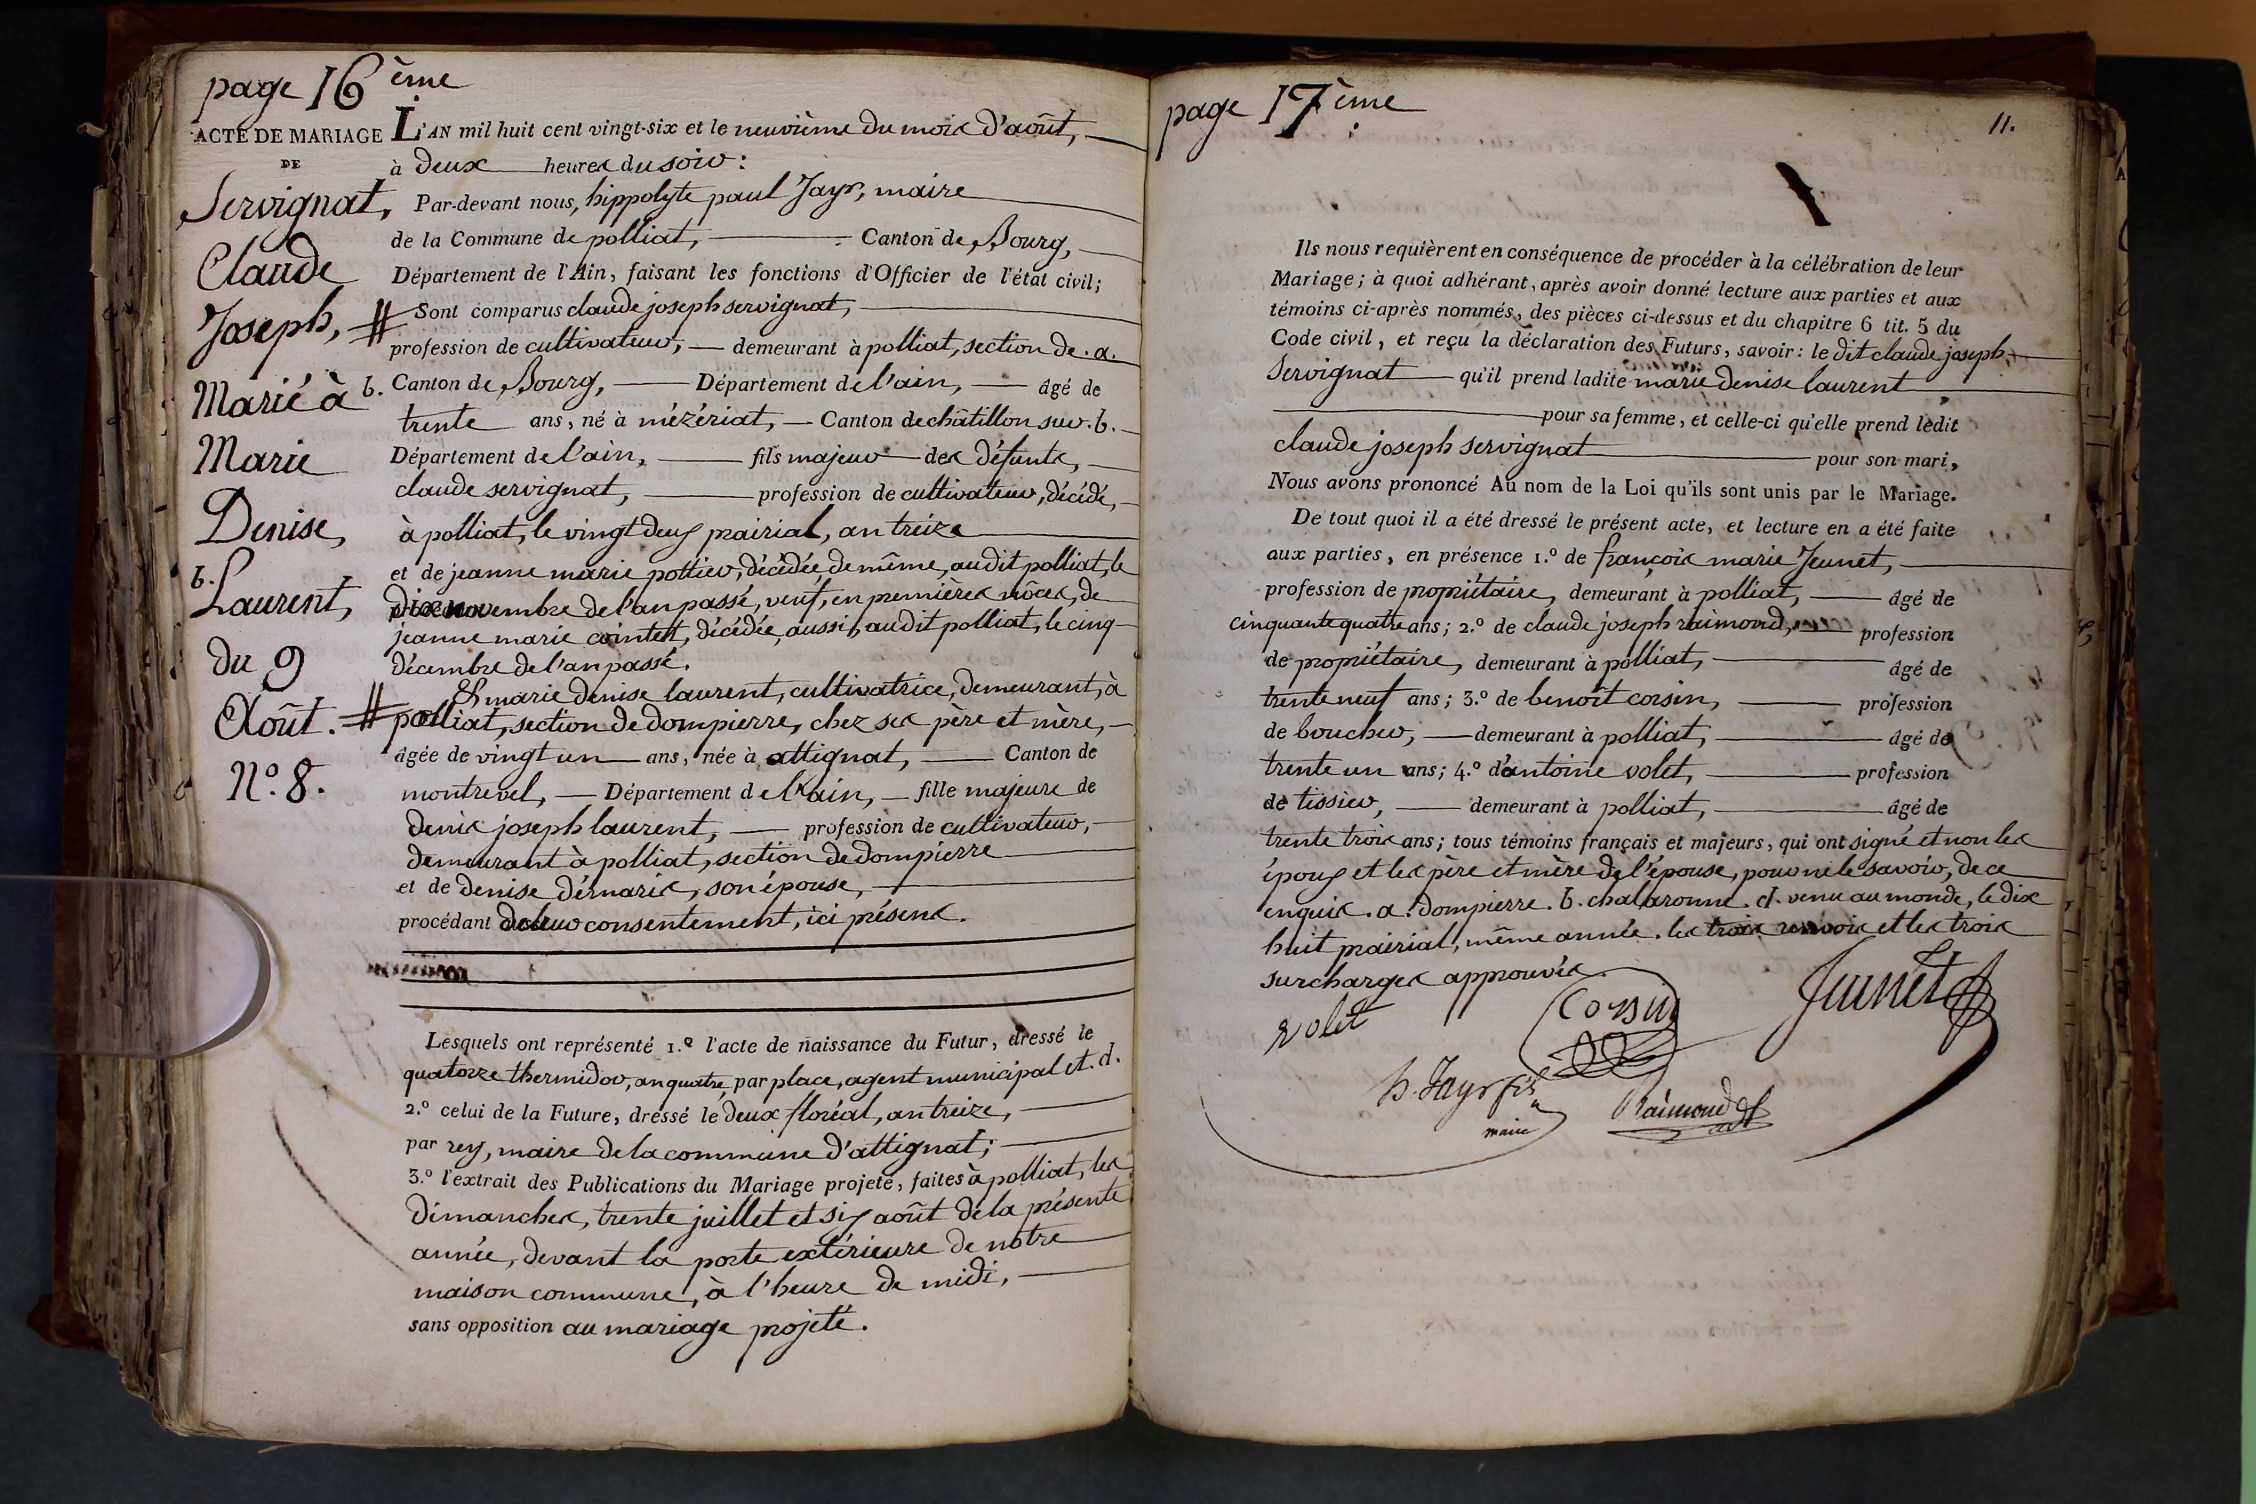 page 16 ème
ACTE DE MARIAGE
DE
Servignat,
Claude
Joseph, #
Marié à
Marie
Denise,
b.
Laurent,
du 9
Août. #
N.o 8.
L'AN mil huit cent vingt-six et le neuvième du mois d'août,
à deux heures du soir :
Par-devant nous, hippolyte paul Jayr, maire
de la Commune de polliat, Canton de Bourg,
Département de l'Ain, faisant les fonctions d'Officier de l'état civil;
Sont comparus claude joseph servignat,
profession de cultivateur, demeurant à polliat, section de . a.
b. Canton de Bourg, Département de l'ain, âgé de
trente ans, né à mézériat, Canton de châtillon sur . b.
Département de l'ain, fils majeur des défunts,
claude servignat, profession de cultivateur, décédé,
à polliat, le vingt deux prairial, an treize
et de jeanne marie pottier, décédée, de même, audit polliat, le
dix novembre de l'an passé, veuf, en premières nôces, de
jeanne marie cointet, décédée, aussi, audit polliat, le cinq
décembre de l'an passé.
Et marie denise laurent, cultivatrice, demeurant, à
polliat, section de dompierre, chez ses père et mère,
âgée de vingt un ans, née à attignat, Canton de
montrevel, Département de l'ain, fille majeure de
denis joseph laurent, profession de cultivateur,
demeurant à polliat, section de dompierre
et de denise démaris, son épouse,
procédant de leur consentement, ici présens.
Lesquels ont représenté 1.o l'acte de naissance du Futur, dressé le
quatorze thermidor, an quatre, par place, agent municipal et . d.
2.o celui de la Future, dressé le deux floréal, an treize,
par rey, maire de la commune d'attignat;
3.o l'extrait des Publications du Mariage projeté, faites à polliat, les
dimanches, trente juillet et six août de la présente
année, devant la porte extérieure de notre
maison commune, à l'heure de midi,
sans opposition au mariage projeté.
page 17 ème
11.
Ils nous requièrent en conséquence de procéder à la célébration de leur
Mariage; à quoi adhérant, après avoir donné lecture aux parties et aux
témoins ci-après nommés, des pièces ci-dessus et du chapitre 6 tit. 5 du
Code civil, et reçu la déclaration des Futurs, savoir: le dit claude joseph
Servignat qu'il prend ladite marie denise laurent
pour sa femme, et celle-ci qu'elle prend ledit
claude joseph servignat pour son mari,
Nous avons prononcé Au nom de la Loi qu'ils sont unis par le Mariage.
De tout quoi il a été dressé le présent acte, et lecture en a été faite
aux parties, en présence 1.o de françois marie Jeunet,
profession de propriétaire, demeurant à polliat, âgé de
cinquante quatre ans; 2.o de claude joseph raimond, profession
de propriétaire, demeurant à polliat, âgé de
trente neuf ans; 3.o de benoît corsin, profession
de boucher, demeurant à polliat, âgé de
trente un ans; 4.o d'antoine volet, profession
de tissier, demeurant à polliat, âgé de
trente trois ans; tous témoins français et majeurs, qui ont signé et non les
époux et les père et mère de l'épouse, pour ne le savoir, de ce
enquis . a . dompierre . b . chalaronne . d . venu au monde, le dix
huit prairial, même année . les trois renvois et les trois
surcharges approuvés.
volet
Corsin
Jeunet
h. Jayr fils
maire
Raimond